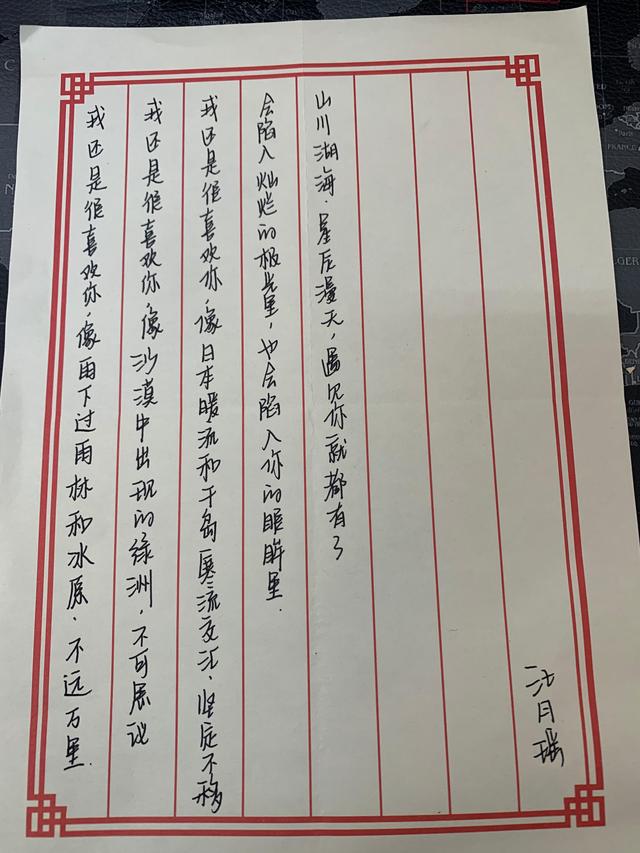 我还是很喜欢你，像雨下过雨林和冰原，不远万里.
我还是很喜欢你，像沙漠中出现的绿洲，不可展议
我还是很喜欢你，像日本暖流和千岛寒流交汇，坚定不移
会陷入灿烂的极光里，也会陷入你的眼眸里.
山川湖海.星辰漫天，遇见你就都有了
月瑶